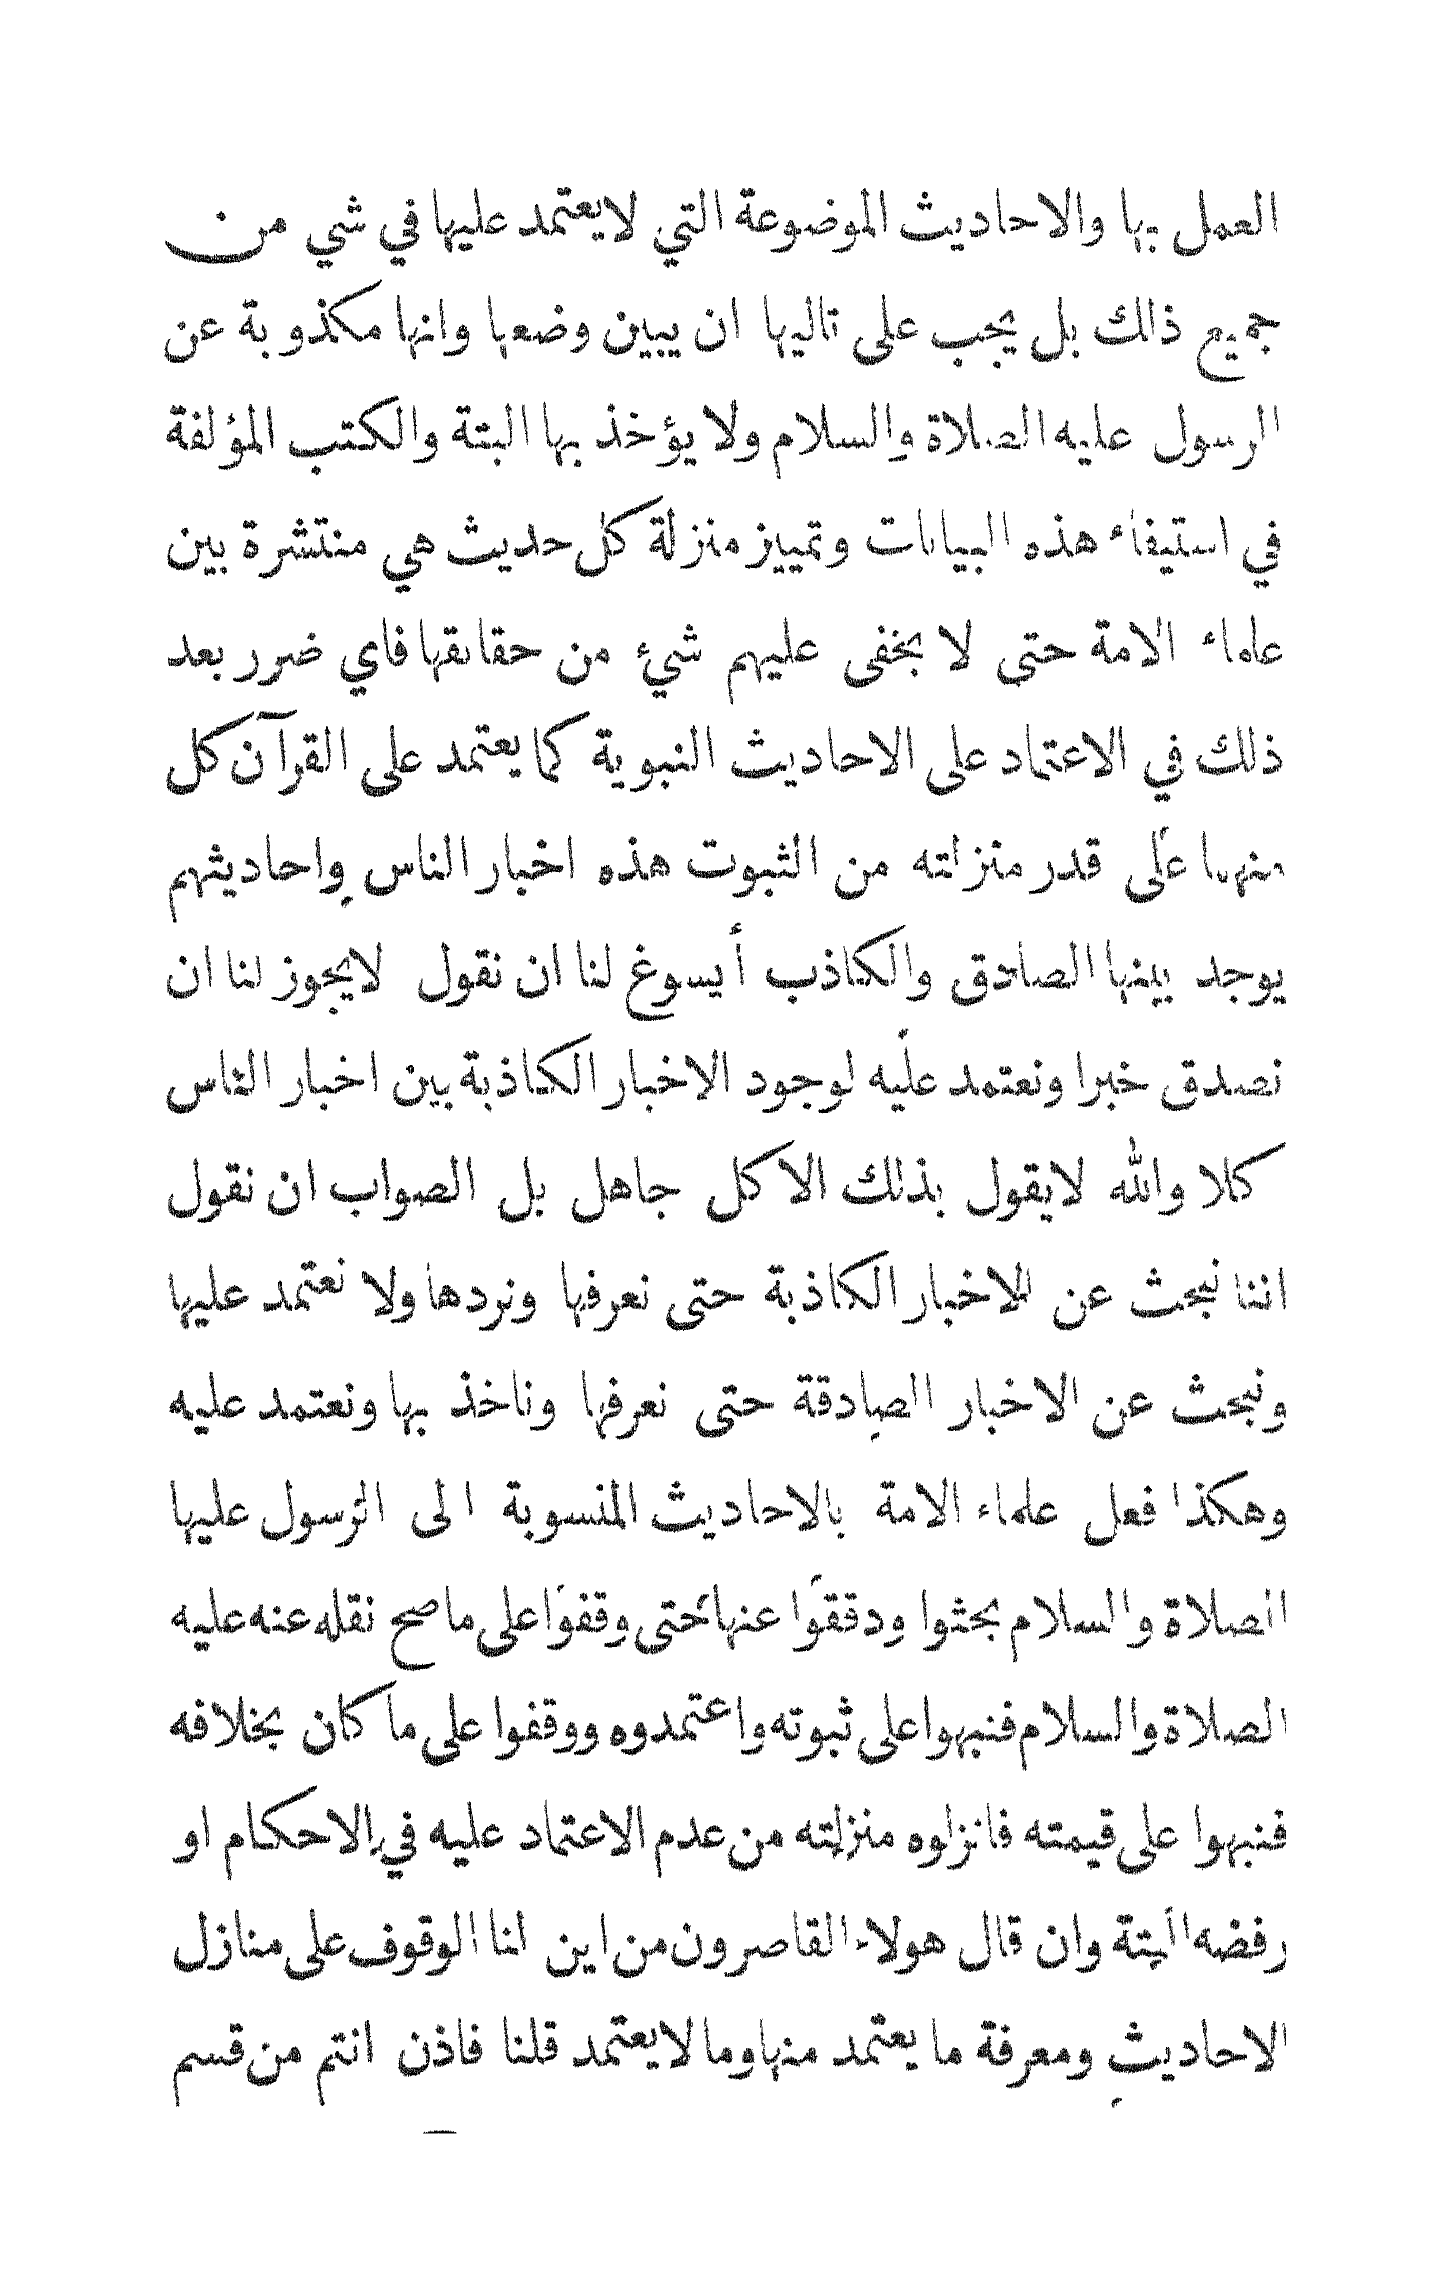 العمل بها والاحاديث الموضوعة التي لايعتمد عليها في شي من
جميع ذالك بل يجب على تاليها ان يبين وضعها وانها مكذوبة عن
الرسول عليه الصلاة والسلام ولا يؤخذ بها البتة والكتب المؤلفة
في استيفاء هذه البيانات وتمييز منزلة كل حديث هي منتشرة بين
علماء الامة حتى لا يخفى عليهم شيء من حقائقها فاي ضرر بعد
ذلك في الاعتماد على الاحاديث النبوية كما يعتمد على القرآن كل
منهما على قدر منزلته من الثبوت هذه اخبار الناس واحاديثهم
يوجد بينها الصادق والكاذب أيسوغ لنا ان نقول لايجوز لنا ان
نصدق خبرا ونعتمد عليه لوجود الاخبار الكاذبة بين اخبار الناس
كلا والله لايقول بذلك الا كل جاهل بل الصواب ان نقول
اننا نبحث عن للاخبار الكاذبة حتى نعرفها ونردها ولا نعتمد عليها
ونبحث عن الاخبار الصادقة حتى نعرفها وناخذ بها ونعتمد عليه
وهكذا فعل علماء الامة بالاحاديث المنسوبة الى الرسول عليها
الصلاة والسلام بحثوا ودققوا عنها حتى وقفوا على ما صح نقله عنه عليه
الصلاة والسلام فنبهوا على ثبوته واعتمدوه ووقفوا على ما كان بخلافه
فنبهوا على قيمته فانزلوه منزلته من عدم الاعتماد عليه في الاحكام او
رفضه البتة وان قال هولاء القاصرون من اين لنا الوقوف على منازل
الاحاديث ومعرفة ما يعتمد منها وما لايعتمد قلنا فاذن انتم من قسم